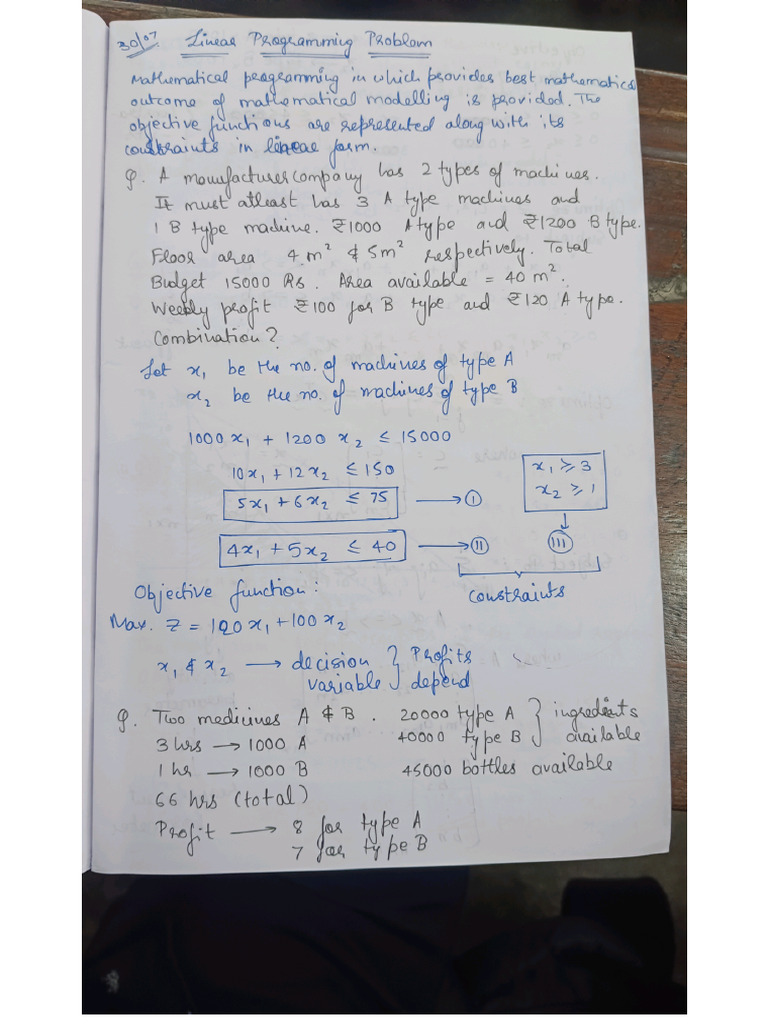 30/07 Linear Programming Problem
Mathematical programming in which provides best mathematical
outcome of mathematical modelling is provided. The
objective functions are represented along with its
constraints in linear form.
Q. A manufacturer company has 2 types of machines.
It must atleast has 3 A type machines and
1 B type machine. ₹1000 A type and ₹1200 B type.
Floor area 4 m² & 5m² respectively. Total
Budget 15000 Rs. Area available = 40 m².
Weekly profit ₹100 for B type and ₹120 A type.
Combination?
Let x₁ be the no. of machines of type A
x₂ be the no. of machines of type B
1000 x₁ + 1200 x₂ ≤ 15000
10x₁ + 12x₂ ≤ 150
x₁ ≥ 3
5x₁ + 6x₂ ≤ 75 → I
x₂ ≥ 1
4x₁ + 5x₂ ≤ 40 → II
III
Objective function:
constraints
Max. Z = 120x₁ + 100x₂
x₁ & x₂ → decision } Profits
variable } depend
Q. Two medicines A & B. 20000 type A } ingredients
3 hrs → 1000 A 40000 type B } available
1 hr → 1000 B 45000 bottles available
66 hrs (total)
Profit → 8 for type A
7 for type B